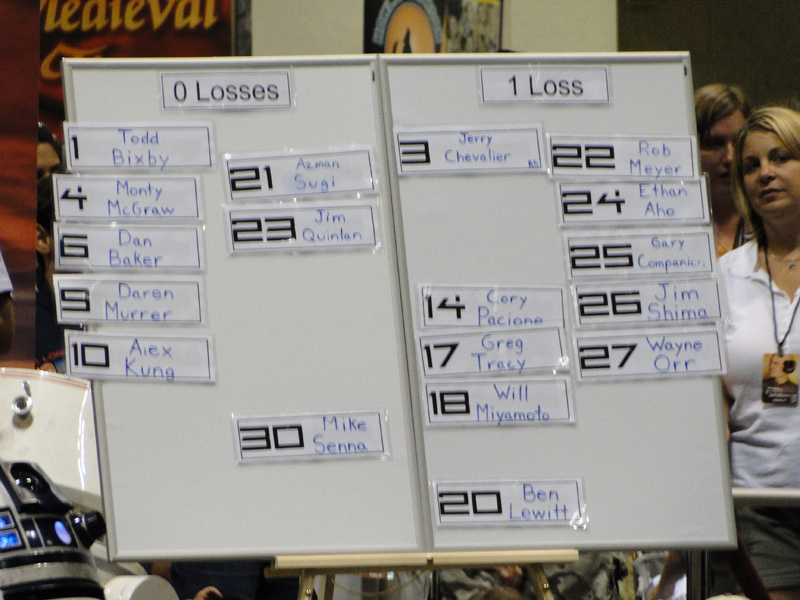 Medieval
0 Losses
1 Todd
Bixby
4 Monty
McGraw
6 Dan
Baker
9 Daren
Murrer
10 Alex
Kung
21 Azman
Sugi
23 Jim
Quinlan
30 Mike
Senna
1 Loss
3 Jerry
Chevalier
14 Cory
Pacione
17 Greg
Tracy
18 Will
Miyamoto
20 Ben
Lewitt
22 Rob
Meyer
24 Ethan
Aho
25 Gary
Companion
26 Jim
Shima
27 Wayne
Orr